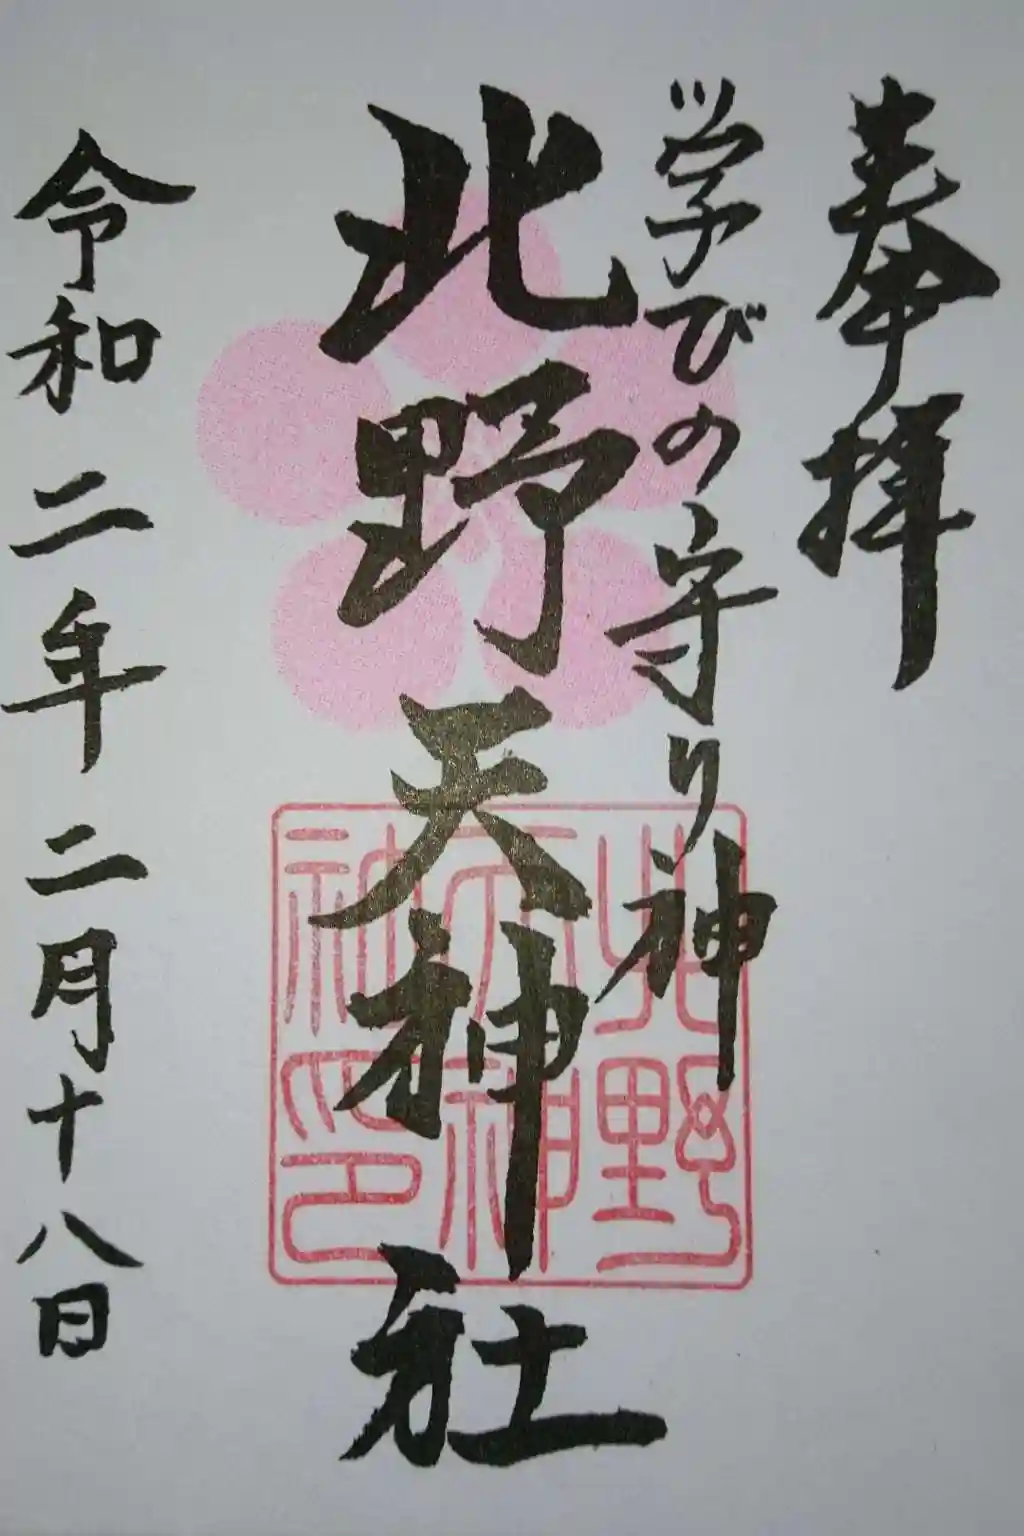 奉拝
学びの守り神
北野天神社
北野
天神
神印
令和二年二月十八日